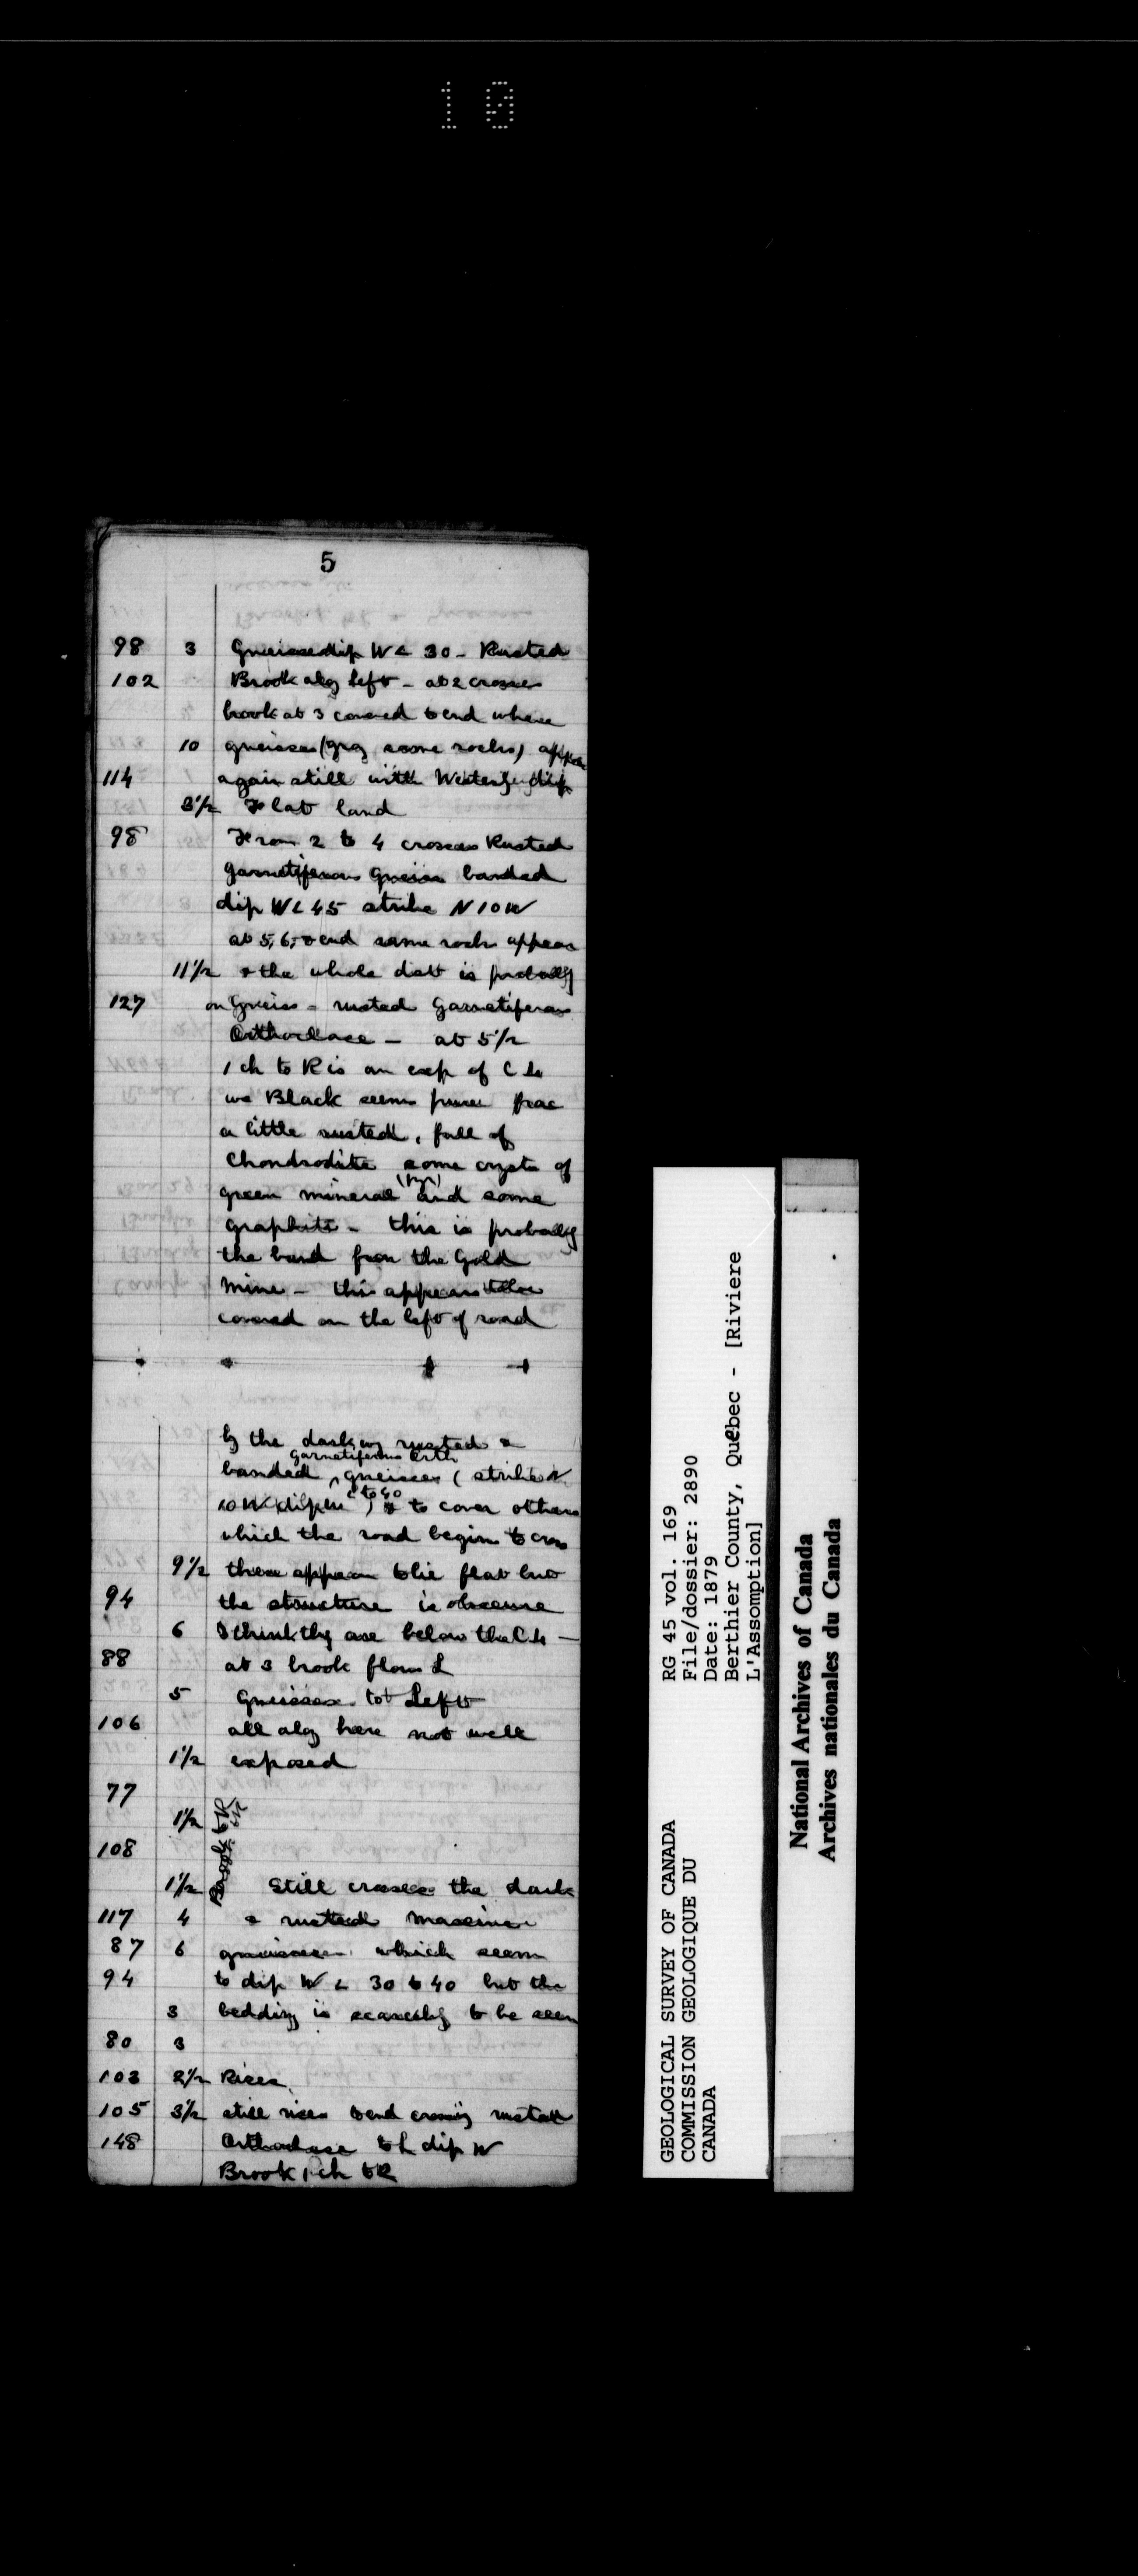 10
5
98 3 Gneisses dip W < 30 - Rusted
102 Brook alg Left - at 2 crosses
brook at 3 covered to end where
10 gneisses (gry same rocks) appear
114 again still with Westerly dip
3 1/2 Flat land
98 From 2 to 4 crosses Rusted
garnetiferous Gneiss banded
dip W < 45 strike N 10 W
at 5, 6, & end same rocks appear
11 1/2 & the whole dist is probably
127 on Gneiss - rusted Garnetiferous
Orthoclase - at 5 1/2
1 ch to R is an exp of C Ls
Black seems
a little rusted, full of
Chondrodite some crysts of
green mineral (Pyr) and some
graphite - this is probably
the band from the Gold
Mine - this appears to be
covered on the left of road
by the dark rusted &
banded garnetiferous Orth gneisses (strike N
10 W dip W < to 40) & to cover others
which the road begins to cross
9 1/2 these appear to lie flat but
94 the structure is obscure
6 I think they are below the C Ls -
88 at 3 brook flows L
5 Gneisses to Left
106 all alg here not well
1 1/2 exposed
77
1 1/2 Brook to R
108
1 1/2 Still crosses the dark
117 4 & rusted massive
87 6 gneisses which seem
94 to dip W < 30 to 40 but the
3 bedding is scarcely to be seen
80 3
103 2 1/2 Rises
105 3 1/2 still rises to end crossing rusted
148 Orthoclase to L dip W
Brook 1 ch to R
GEOLOGICAL SURVEY OF CANADA
COMMISSION GEOLOGIQUE DU
CANADA
RG 45 vol. 169
File/dossier: 2890
Date: 1879
Berthier County, Québec - [Riviere
L'Assomption]
National Archives of Canada
Archives nationales du Canada